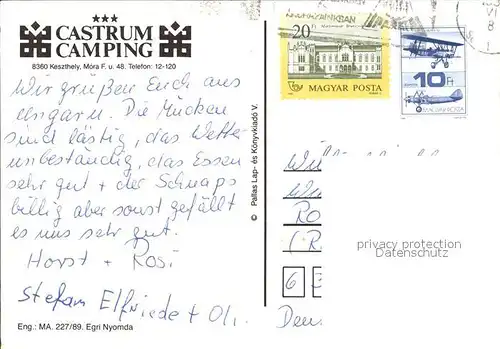 ★★★
CASTRUM
CAMPING
8360 Keszthely, Móra F. u. 48. Telefon: 12-120
Wir grüßen Euch aus
Ungarn. Die Mücken
sind lästig, das Wetter
unbeständig, das Essen
sehr gut + der Schnaps
billig aber sonst gefällt
es uns sehr gut.
Horst + Rosi
Stefan Elfriede + Oli.
Eng.: MA. 227/89. Egri Nyomda
© Pallas Lap- és Könyvkiadó V.
20 Ft
MAGYAR POSTA
10 Ft
MAGYAR POSTA
privacy protection
Datenschutz
6